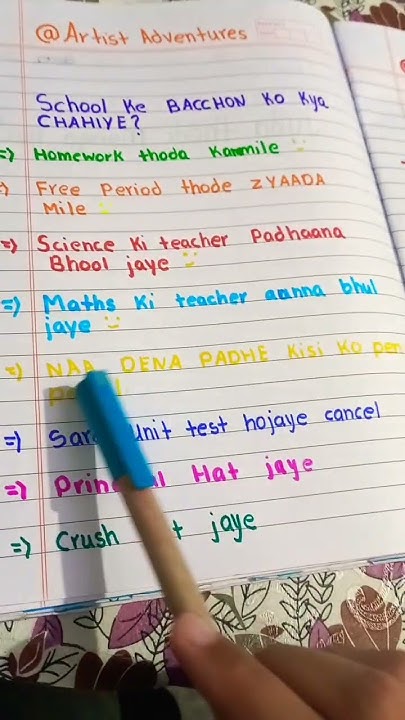 @Artist Adventures
School Ke BACCHON KO Kya
CHAHIYE?
=) Homework thoda Kammile
=) Free Period thode ZYAADA
Mile
=) Science Ki teacher Padhaana
Bhool jaye
=) Maths Ki teacher aanna bhul
jaye
=) NAA DENA PADHE Kisi KO pen
=) Unit test hojaye cancel
=) Hat jaye
=) Crush jaye